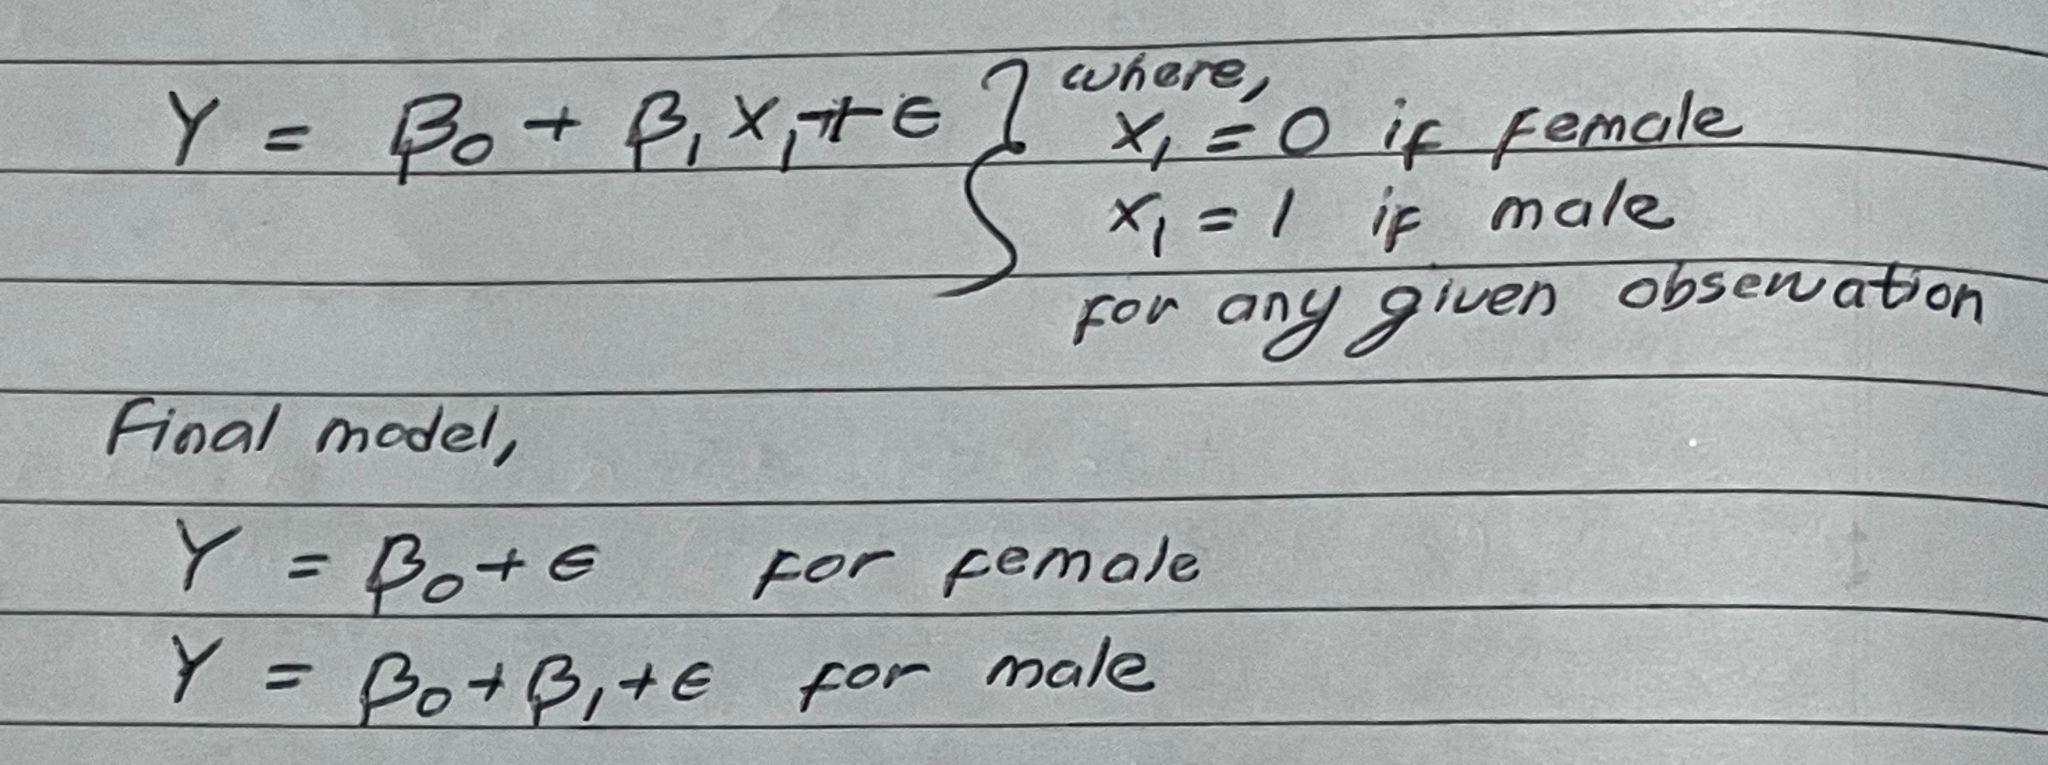 Y = β₀ + β₁ X₁ + ϵ } where,
X₁ = 0 if female
X₁ = 1 if male
for any given observation
Final model,
Y = β₀ + ϵ for female
Y = β₀ + β₁ + ϵ for male